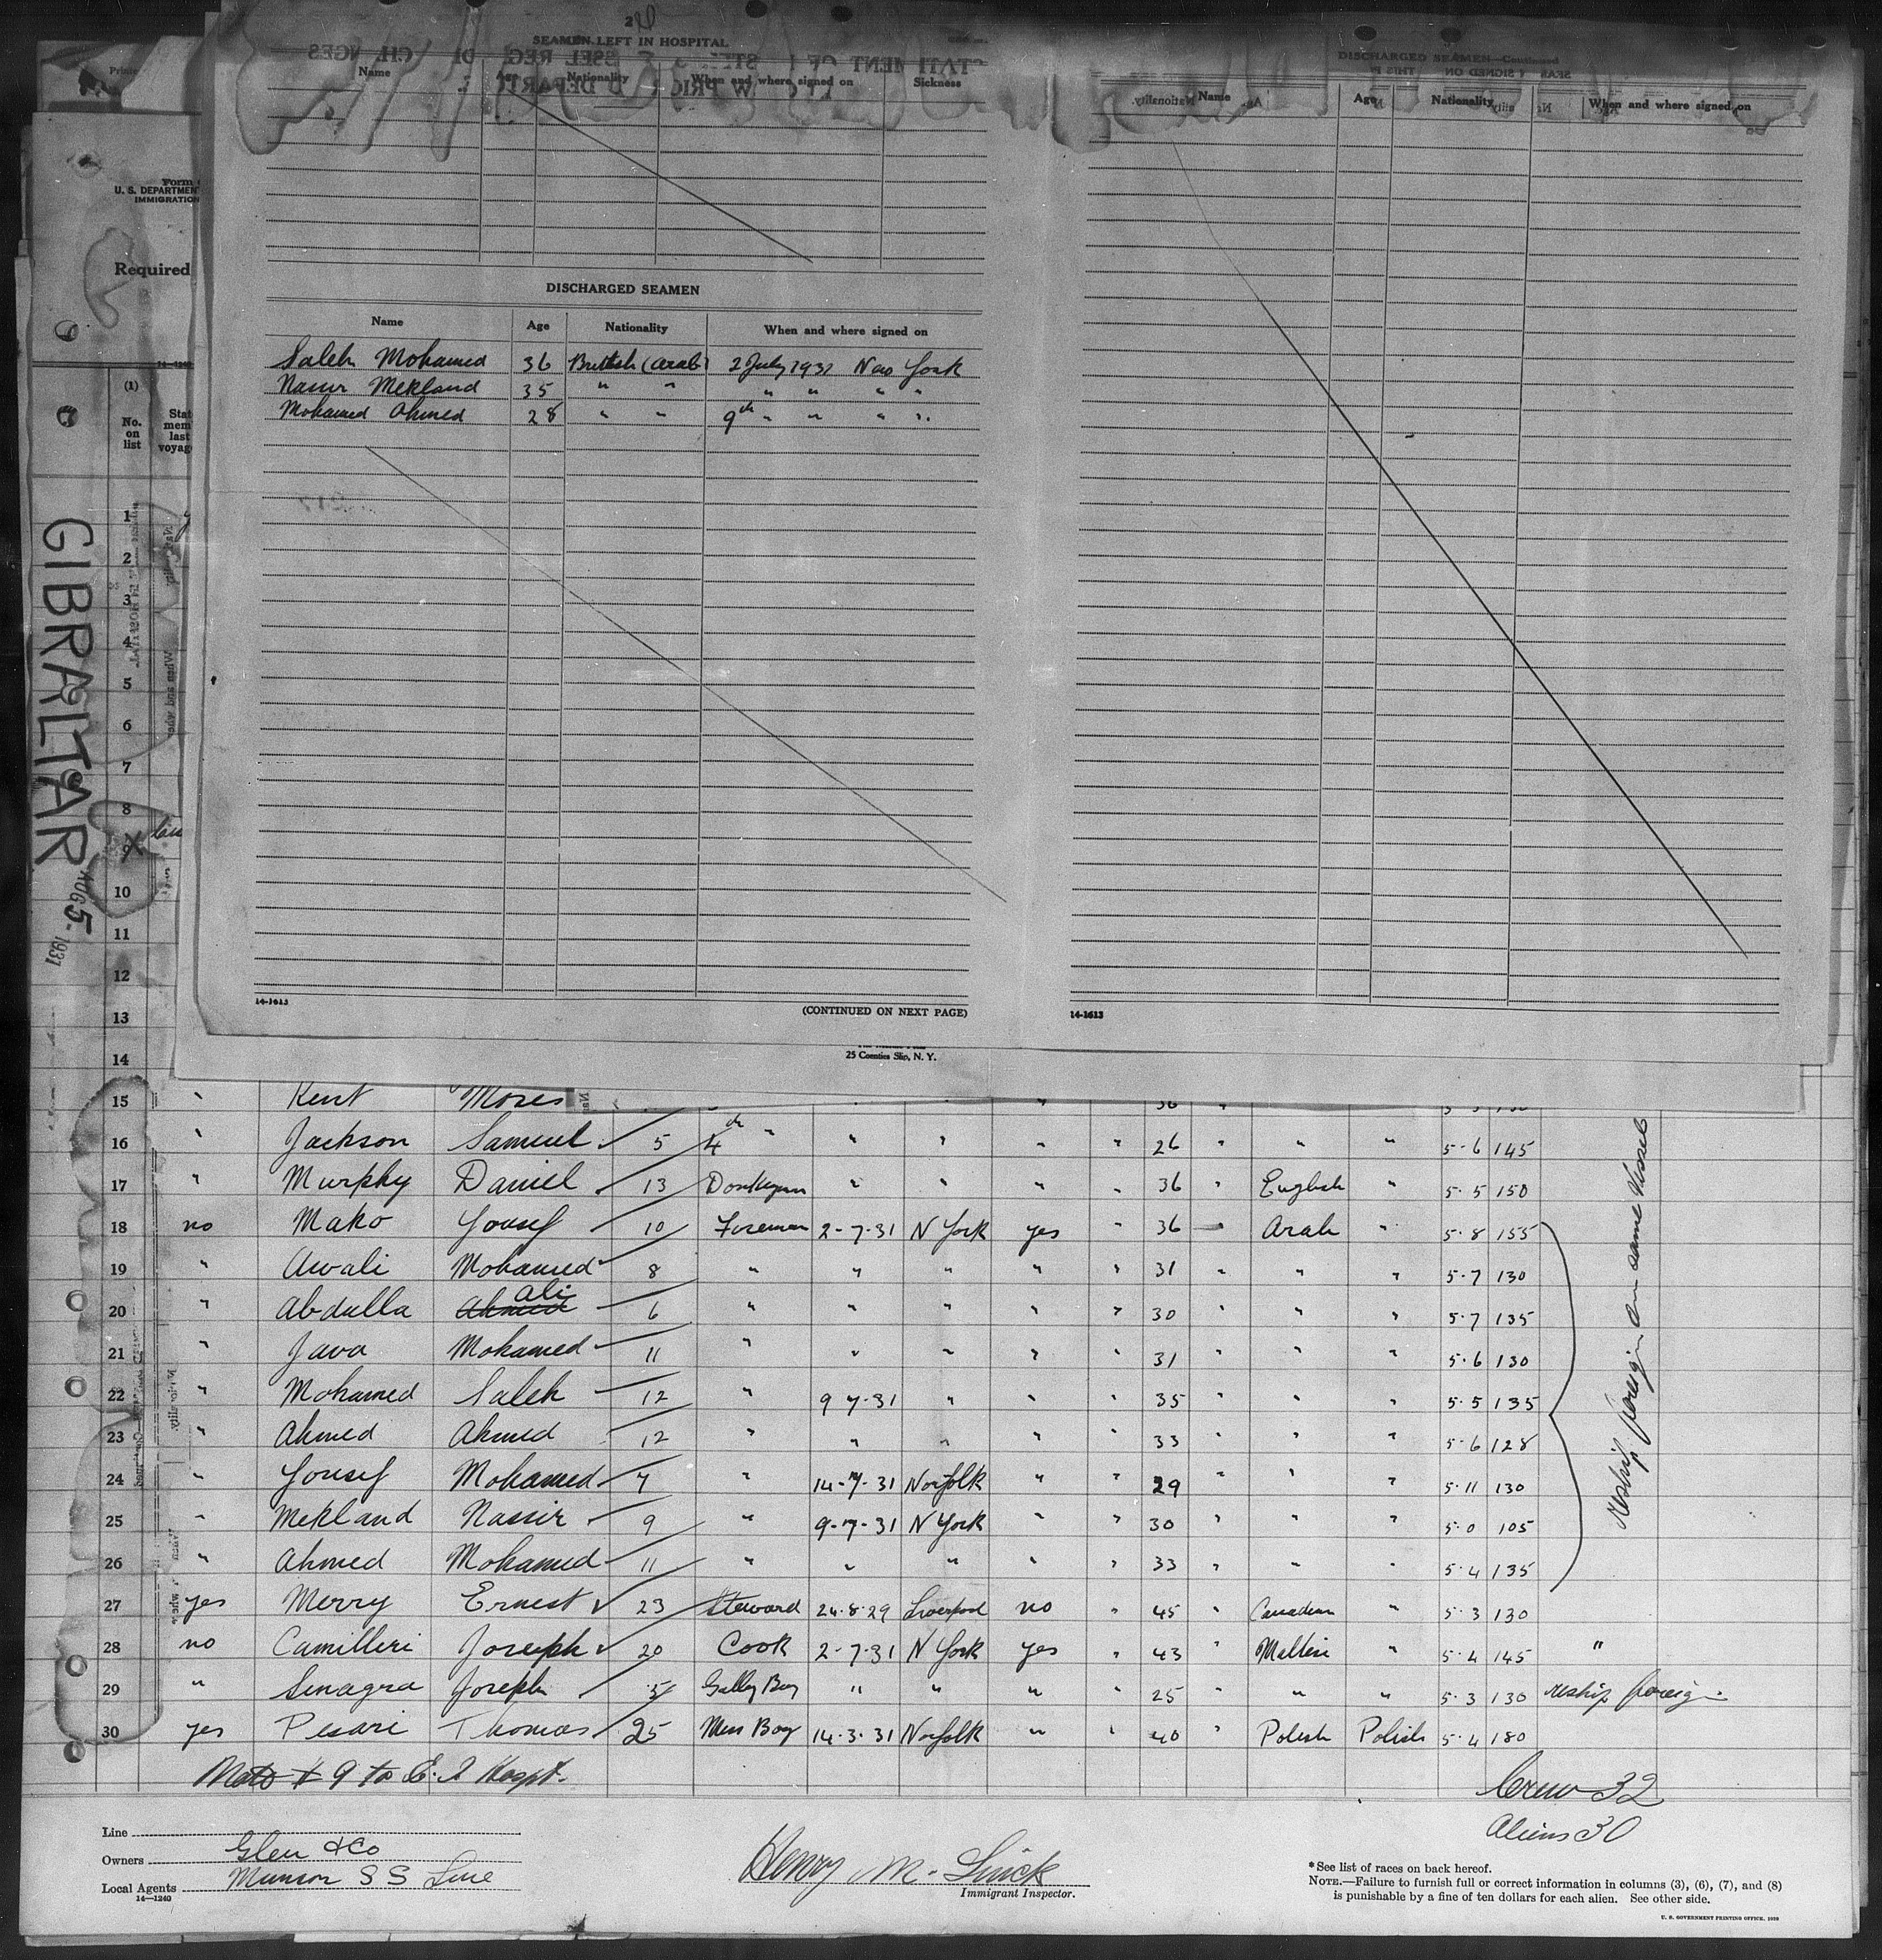 SEAMEN LEFT IN HOSPITAL
Name Age Nationality When and where signed on Sickness
DISCHARGED SEAMEN
Name Age Nationality When and where signed on
Saleh Mohamed 36 British (Arab) 2 July 1931 New York
Nassir Mekland 35 " " " " " "
Mohamed Ahmed 28 " " 9th " " " "
14-1613 (CONTINUED ON NEXT PAGE)
DISCHARGED SEAMEN—Continued
Name Age Nationality When and where signed on
14-1613
25 Coenties Slip, N. Y.
Form
U. S. DEPARTMEN
IMMIGRATION
Required
14-1240
(1)
No. on list
GIBRALTAR
AUG 5 - 1931
1
2
3
4
5
6
7
8
9
10
11
12
13
14
15 " Kent Moses 36
16 " Jackson Samuel 5 4th " " " " " 26 " " " 5-6 145
17 " Murphy Daniel 13 Donkeyman " " " " 36 " English " 5-5 150
18 no Mako Yousef 10 Fireman 2-7-31 N York yes " 36 " Arab " 5-8 155
19 " Awali Mohamed 8 " " " " " 31 " " " 5-7 130
20 " Abdulla Ahmed Ali 6 " " " " " 30 " " " 5-7 135
21 " Java Mohamed 11 " " " " " 31 " " " 5-6 130
22 " Mohamed Saleh 12 " 9 7-31 " " " 35 " " " 5-5 135
23 " Ahmed Ahmed 12 " " " " " 33 " " " 5-6 128
24 " Yousef Mohamed 7 " 14-7-31 Norfolk " " 29 " " " 5-11 130
25 " Mekland Nassir 9 " 9-7-31 N York " " 30 " " " 5-0 105
26 " Ahmed Mohamed 11 " " " " " 33 " " " 5-4 135
reship foreign on same vessel
27 yes Merry Ernest 23 Steward 24-8-29 Liverpool no " 45 " Canadian " 5-3 130
28 no Camilleri Joseph 20 Cook 2-7-31 N York yes " 43 " Maltese " 5-4 145 "
29 " Sinagra Joseph 5 Galley Boy " " " " 25 " " " 5-3 130 reship foreign
30 yes Pesari Thomas 25 Mess Boy 14-3-31 Norfolk " " 40 " Polish Polish 5-4 180
# 9 to E. I Hospt.
Crew 32
Aliens 30
Line
Owners Glen & Co
Local Agents Munson S S Line
14—1240
Henry M.
Immigrant Inspector.
* See list of races on back hereof.
NOTE.—Failure to furnish full or correct information in columns (3), (6), (7), and (8)
is punishable by a fine of ten dollars for each alien. See other side.
U. S. GOVERNMENT PRINTING OFFICE